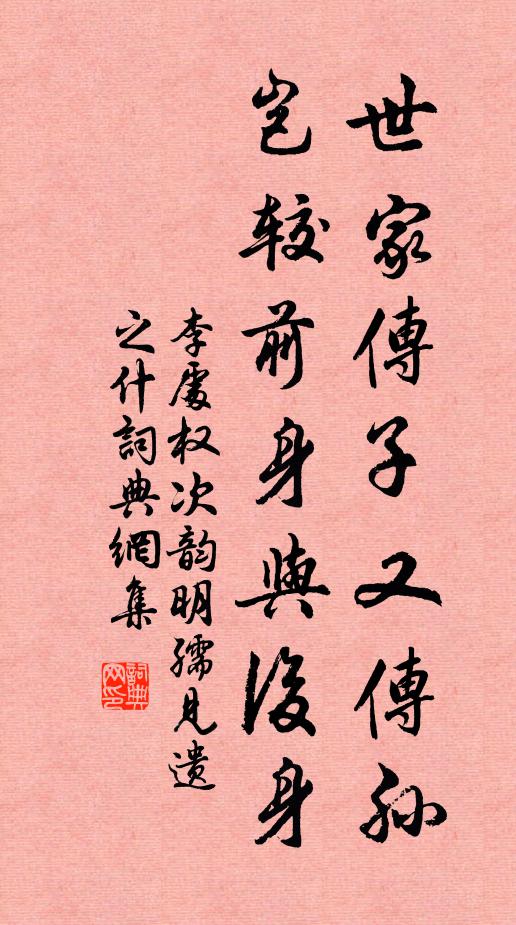 世家傳子又傳孫
豈較前身與後身
李處权次韵明孺見遺
之什詞典網集
詞典網印